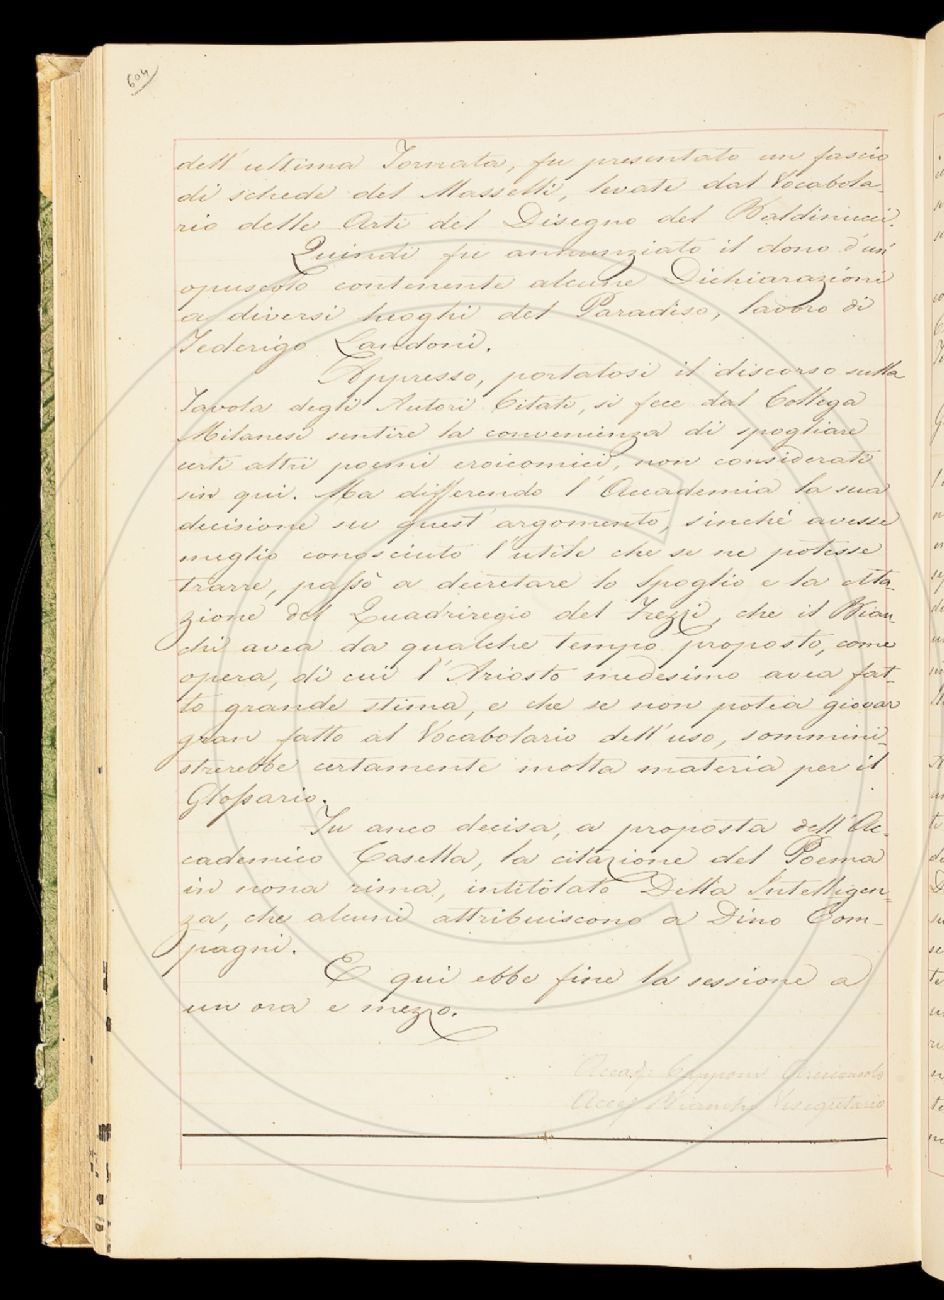 604
dell'ultima Tornata, fu presentato un fascio
di schede del Masselli, levate dal Vocabola-
rio delle Arti del Disegno del Baldinucci.
Quindi fu annunziato il dono d'un
opuscolo contenente alcune Dichiarazioni
a diversi luoghi del Paradiso, lavoro di
Federigo Landoni.
Appresso, portatosi il discorso sulla
Tavola degli Autori Citati, si fece dal Collega
Milanesi sentire la convenienza di spogliare
certi altri poemi eroicomici, non considerati
sin qui. Ma differendo l'Accademia la sua
decisione su quest'argomento, sinchè avesse
meglio conosciuto l'utile che se ne potesse
trarre, passò a decretare lo spoglio e la cita-
zione del Quadriregio del Frezzi, che il Bian-
chi avea da qualche tempo proposto, come
opera, di cui l'Ariosto medesimo avea fat-
to grande stima, e che se non potea giovar
gran fatto al Vocabolario dell'uso, sommini-
strerebbe certamente molta materia per il
Glossario.
Fu anco decisa, a proposta dell'Ac-
cademico Casella, la citazione del Poema
in nona rima, intitolato Della Intelligen-
za, che alcuni attribuiscono a Dino Com-
pagni.
E qui ebbe fine la sessione a
un ora e mezzo.
Accad. Capponi Arciconsolo
Acc. Bianchi Vicesegretario